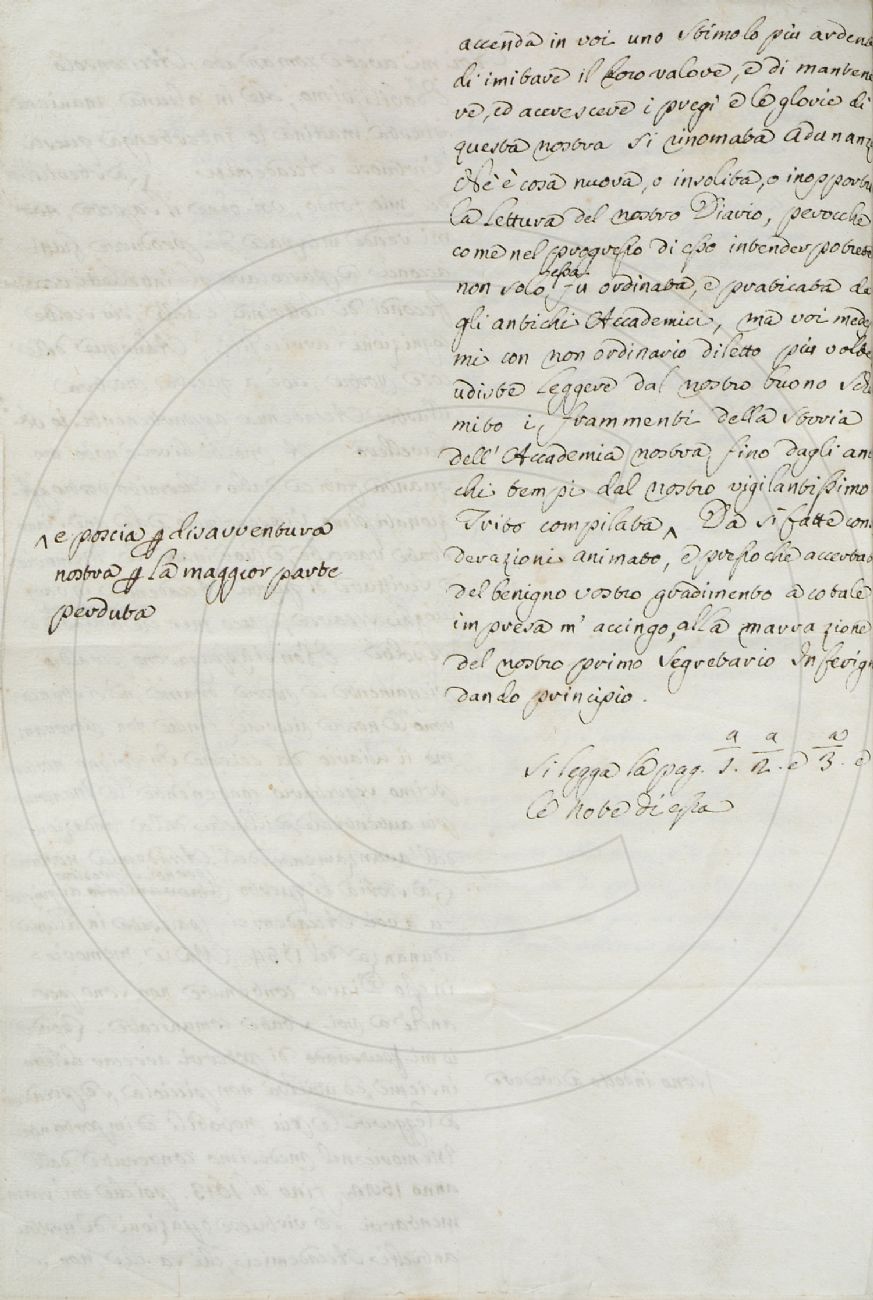 accenda in voi uno stimolo più ardente
di imitare il loro valore, e di mantene
re, ed accrescere i pregi e le glorie di
questa nostra sì rinomata Adunanza
Nè è cosa nuova, o insolita, o inopportu
la lettura del nostro Diario, perocchè
come nel progresso di esso intender potrete
non solo essa fu ordinata, e praticata da
gli antichi Accademici, ma voi mede
mi con non ordinario diletto più volte
udiste leggere dal nostro buono Schi
mito i frammenti della storia
dell' Accademia nostra fino dagli an
chi tempi dal nostro vigilantissimo
Trito compilata ^ Da sì fatte con
derazioni animato, e pressochè accertato
del benigno vostro gradimento a cotale
impresa m' accingo, alla narrazione
del nostro primo Segretario Inferign
dando principio.
^ e poscia p disavventura
nostra p la maggior parte
perduta
Si legga la pag. 1.a 2.a e 3.a e
le note di essa